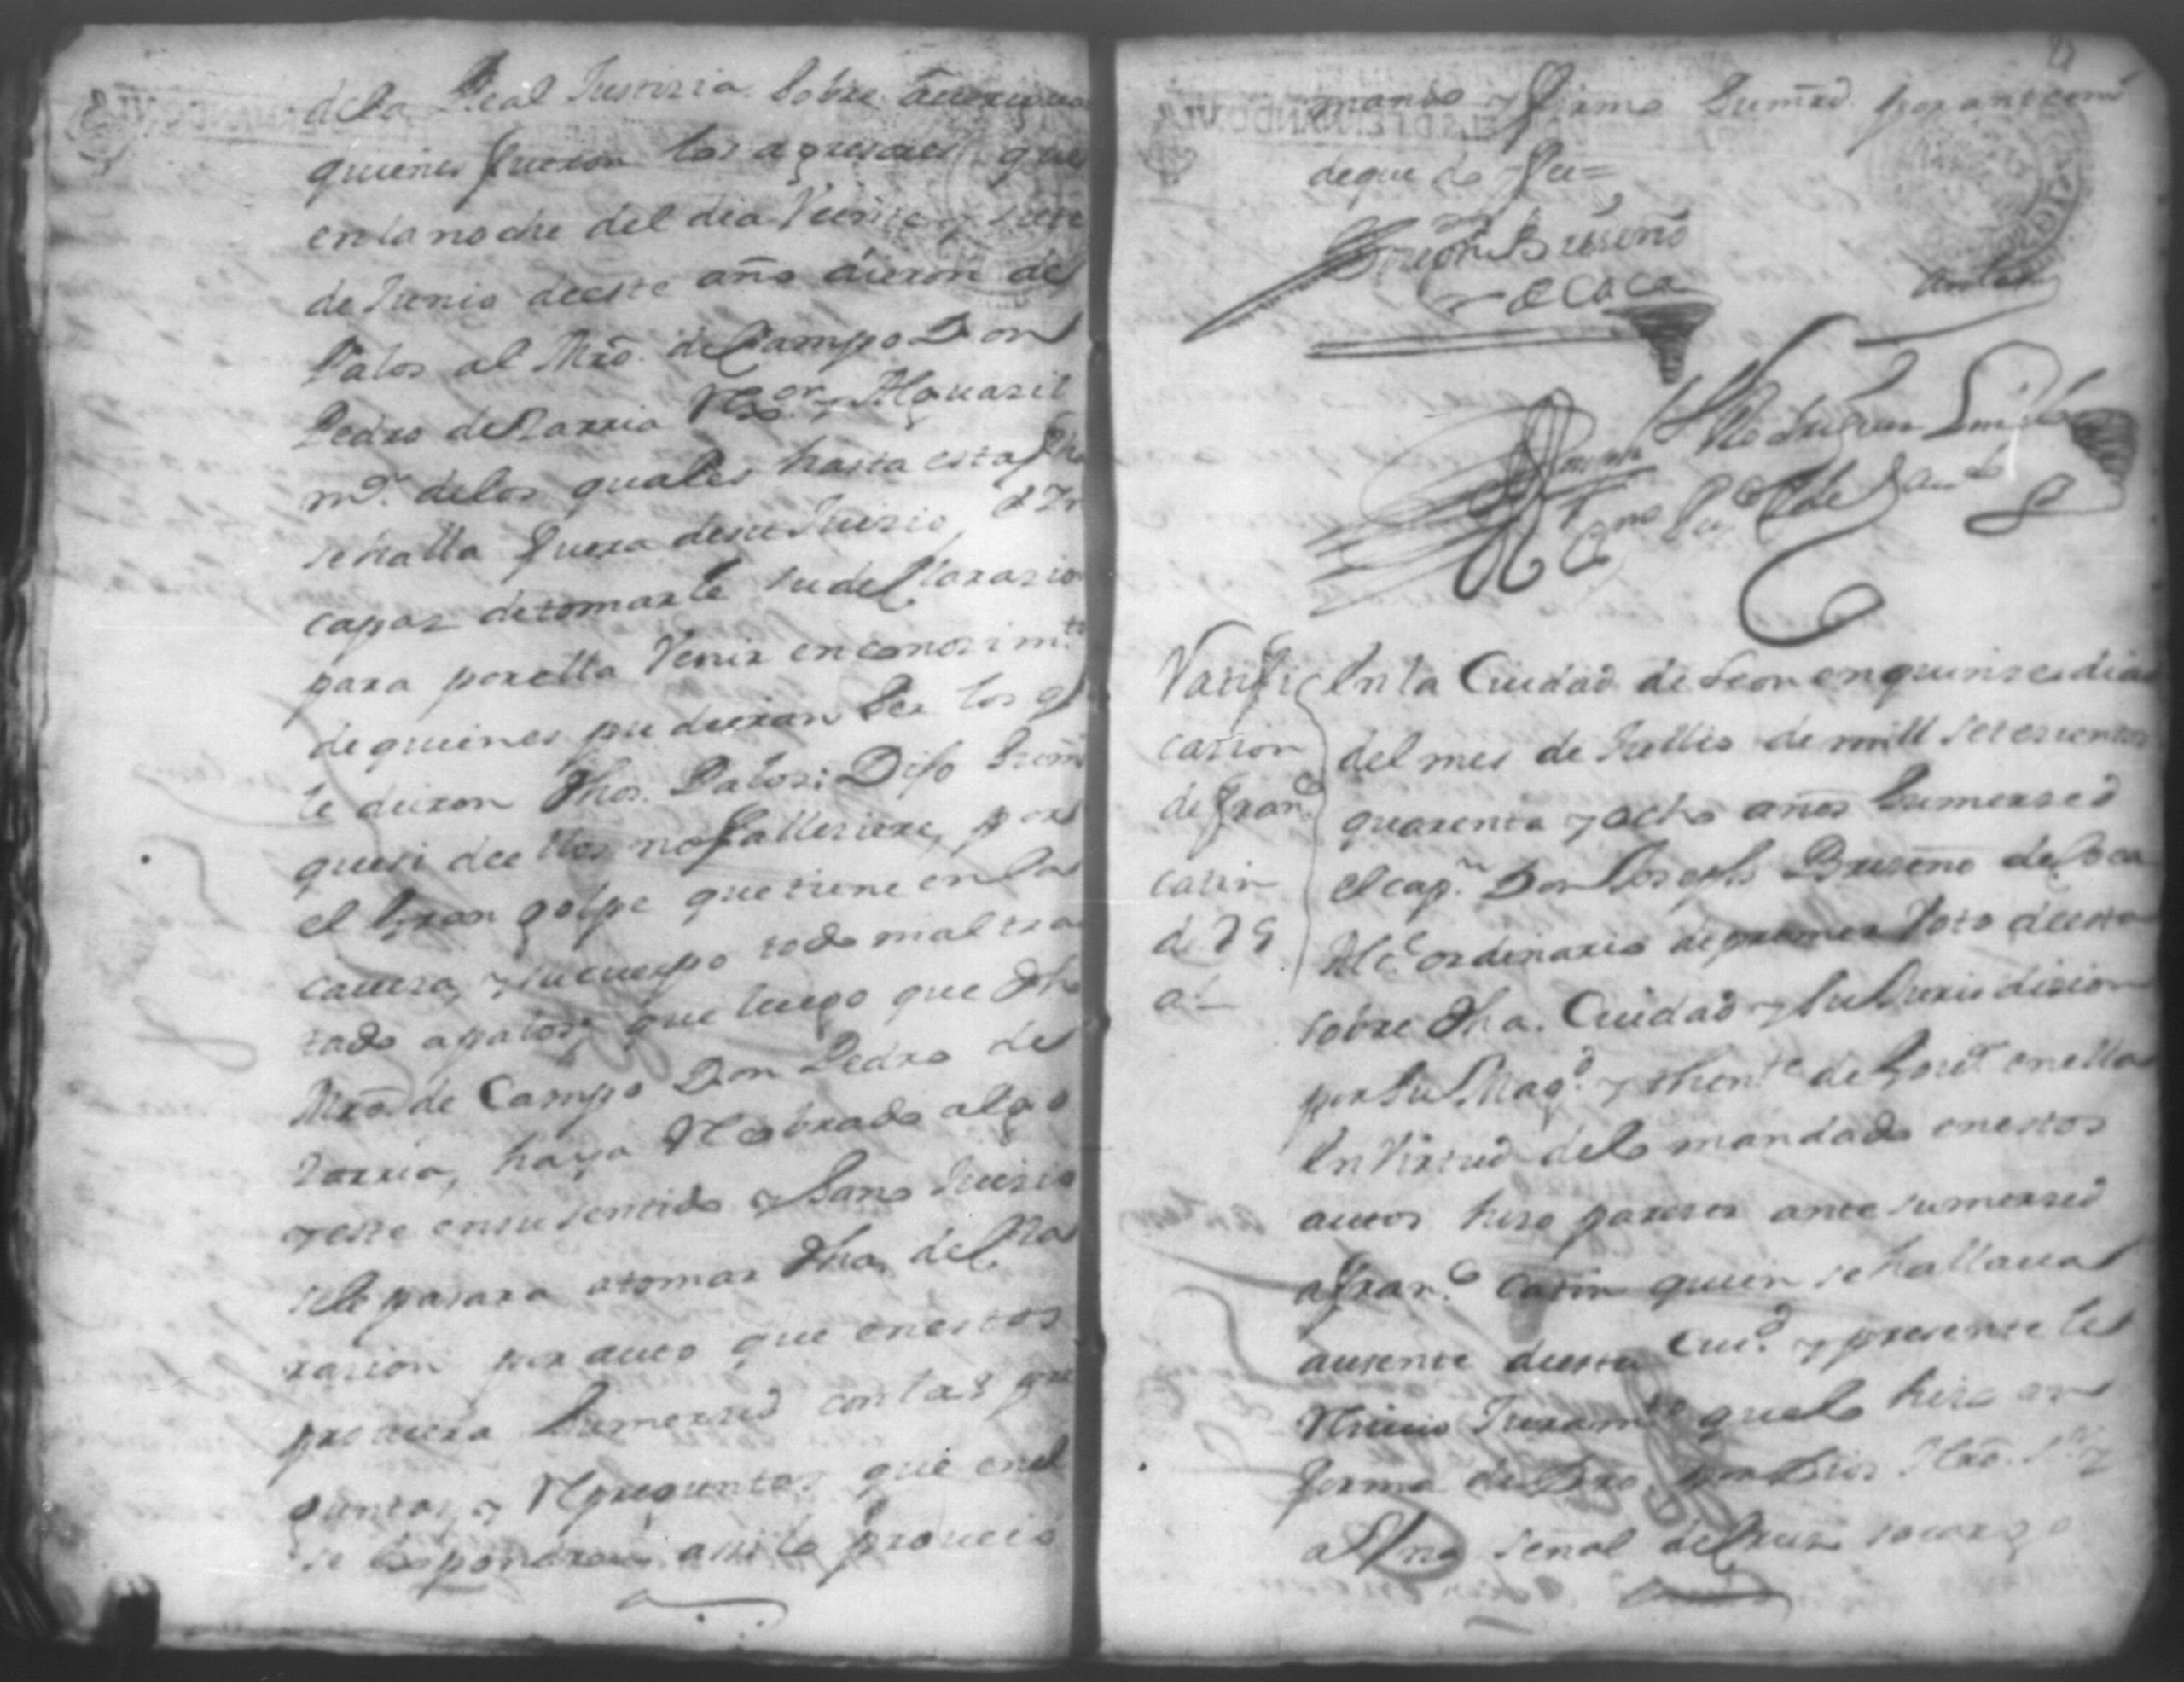 dela Real Justizia sobre aueriguar
quienes fueron los agresores que
en la noche del dia Veinte y siete
de Junio deeste año dieron de
Palos al Mro. de Campo Don
Pedro de Larria Rxor. y Alguazil
mr. delos quales hasta esta fha
se halla fuera desu Juizio, è In
capaz detomarle su declarazion
para porella Venir en conozimto.
de quienes pudieran ser los q
le dieron dhos. Palos: Dijo sumd
quesi deellos no fallesiere, por
el gran golpe que tiene en la
caueza, y su cuerpo todo maltra
tado apalos, que luego que dho
Mro. de Campo Don Pedro de
Larria, haya Recobrado algo
y este en su sentido y sano Juizio
sele pasara atomar dha. decla
razion por auto que enestos
proueera sumersed con las pre
guntas, y Repreguntas que enel
se expondran assi lo proueió
mando y firmo sumrd. por antemi
deque doy fee=
Joseph Briseño
y Coca
antemi
En la Ciudad de Leon en quinze dias
del mes de Jullio de mill setesientos
quarenta y ocho años sumersed
el capn. Don Joseph Briseño de Coca
Alce. ordinario de primer Voto deesta
sobre dha. Ciudad y su Jurisdizion
por su Magd. y thente. de Govr. en ella
En Virtud delo mandado enestos
autos hizo pareser ante sumersed
a franco. Catin quien se hallaua
ausente deesta Ciud. y presente le
Reciuio Juramto. quelo hizo en
forma de Dro. por Dios Nro. Sr. y
a Una señal de Cruz so cargo
Ratifi
cazion
de franco.
catin
de 25
as.